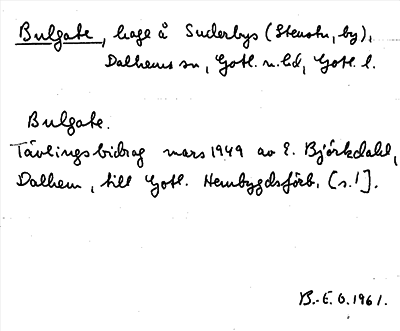 Bulgate, hage å Suderbys (Stenstu, by),
Dalhems sn, Gotl. n. hd, Gotl. l.
Bulgate.
Tävlingsbidrag mars 1949 av E. Björkdahl,
Dalhem, till Gotl. Hembygdsförb. [s. 1].
B.-E. O. 1961.